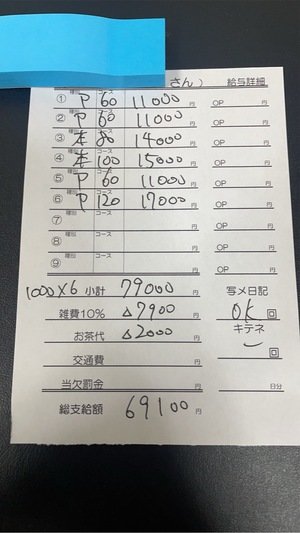 さん) 給与詳細
① 種別 P コース 60 11000 円 OP 円
② 種別 P コース 60 11000 円 OP 円
③ 種別 本 コース 80 14000 円 OP 円
④ 種別 本 コース 100 15000 円 OP 円
⑤ 種別 P コース 60 11000 円 OP 円
⑥ 種別 P コース 120 17000 円 OP 円
⑦ 種別 コース 円 OP 円
⑧ 種別 コース 円 OP 円
⑨ 種別 コース 円 OP 円
1000×6 小計 79000 円 写メ日記
雑費10% △7900 円 OK 回
お茶代 △2000 円 キテネ
交通費 円 回
当欠罰金 円 日分
総支給額 69100 円